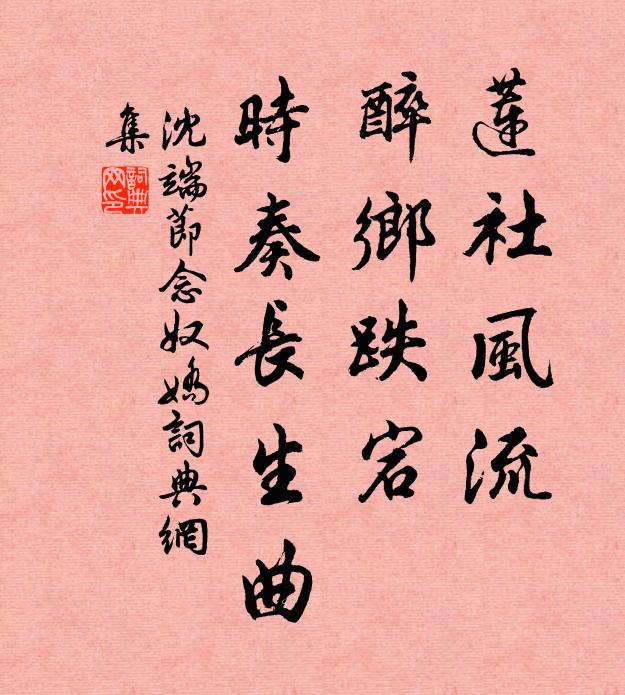 蓮社風流
醉鄉跌宕
時奏長生曲
沈端節念奴嬌詞典網
集
詞典
网印